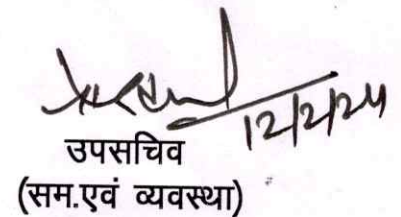 12/2/24
उपसचिव
(सम.एवं व्यवस्था)